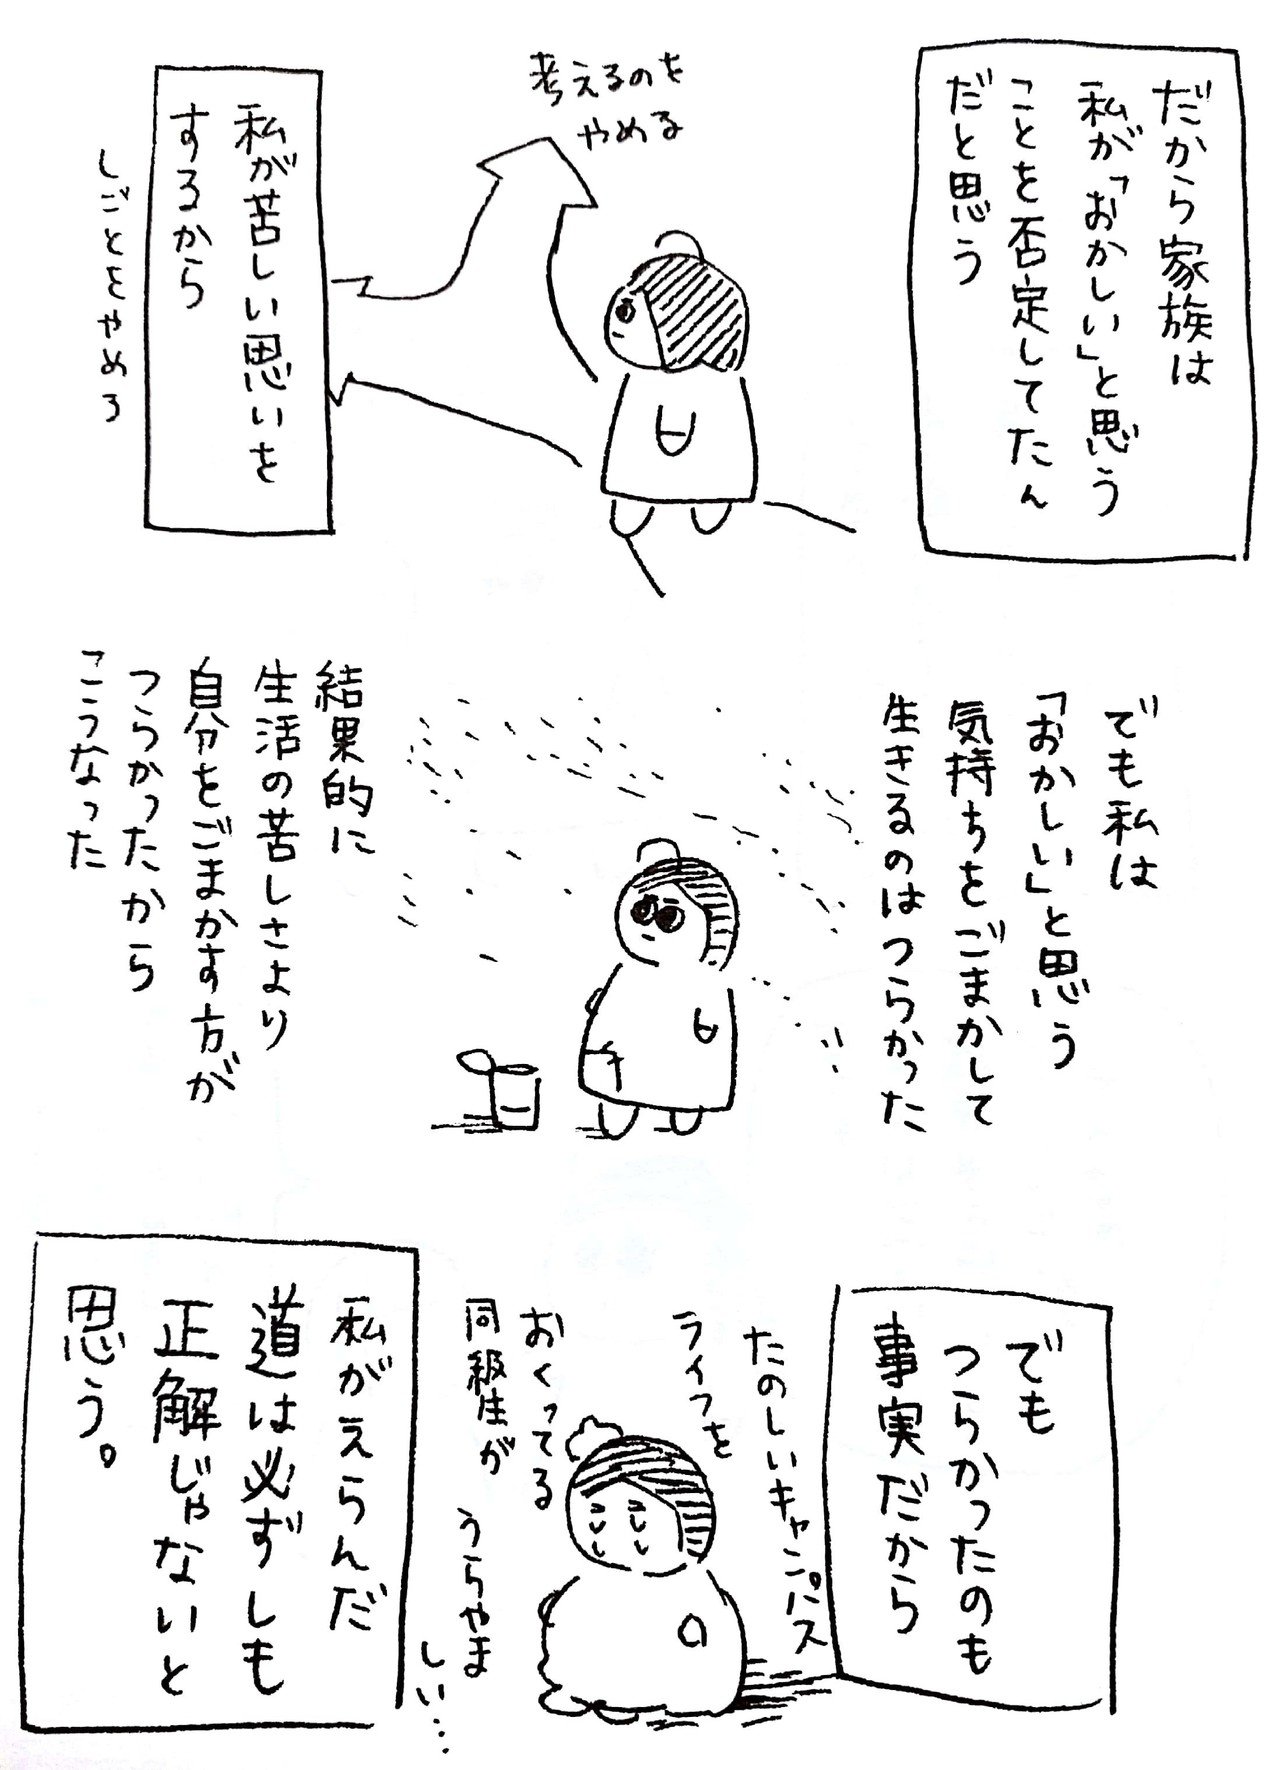 だから家族は
私が「おかしい」と思う
ことを否定してたん
だと思う
考えるのを
やめる
私が苦しい思いを
するから
しごとをやめろ
でも私は
「おかしい」と思う
気持ちをごまかして
生きるのはつらかった
結果的に
生活の苦しさより
自分をごまかす方が
つらかったから
こうなった
でも
つらかったのも
事実だから
たのしいキャンパス
ライフを
おくってる
同級生が
うらやま
しい…
私がえらんだ
道は必ずしも
正解じゃないと
思う。